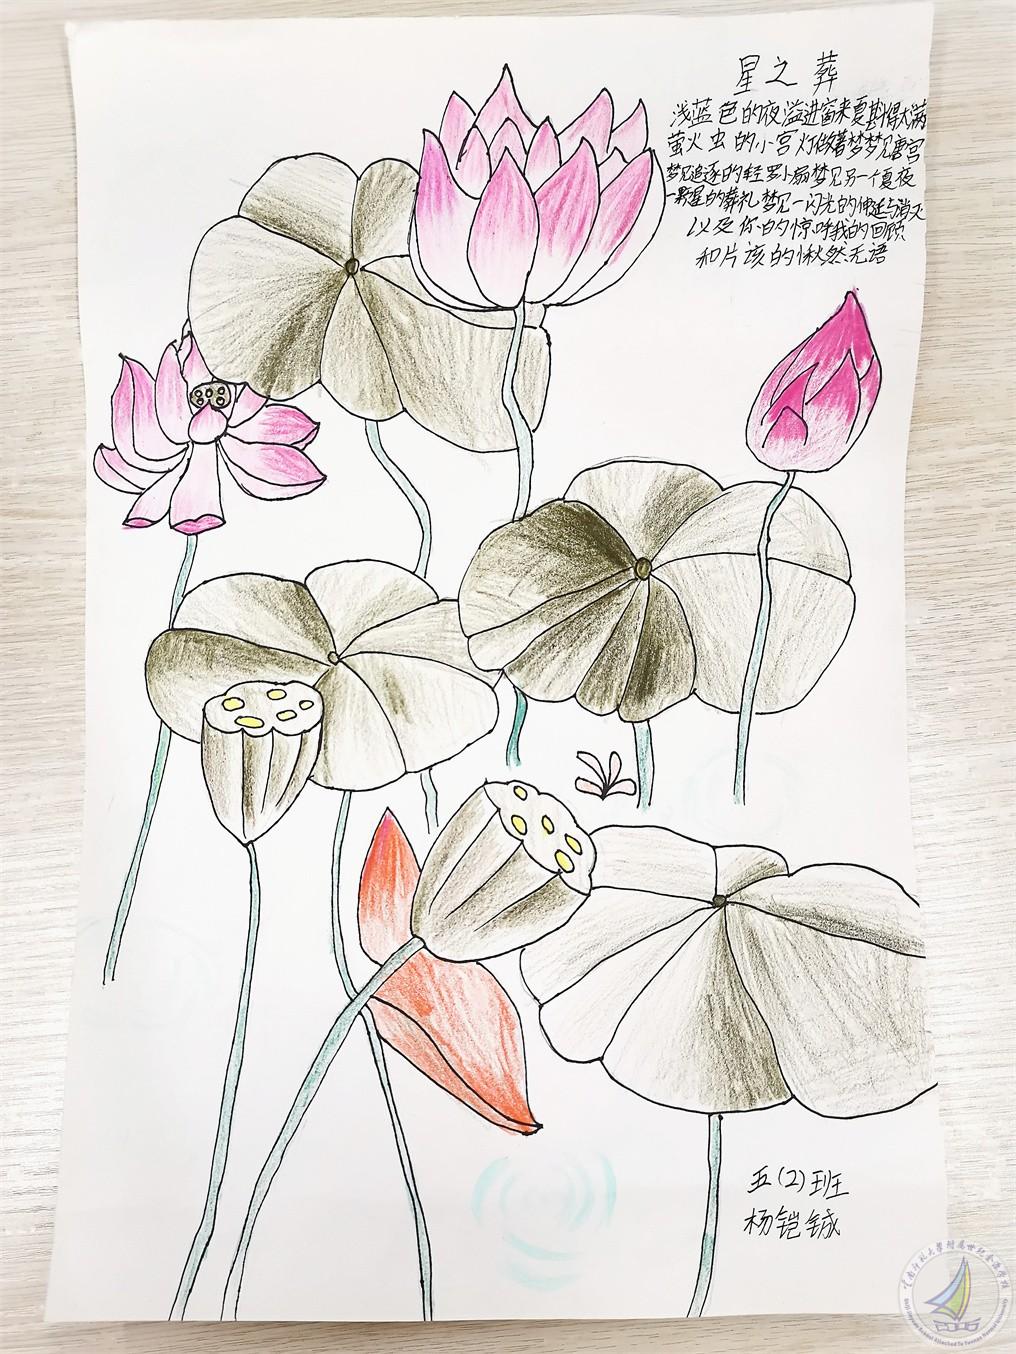 星之葬
浅蓝色的夜溢进窗来夏斟得太满
萤火虫的小宫灯做着梦梦见唐宫
梦见追逐的轻罗小扇梦见另一个夏夜
一颗星的葬礼梦见一闪光的伸延与消灭
以及你的惊呼我的回顾
和片该的愀然无语
五(2)班
杨铠铖